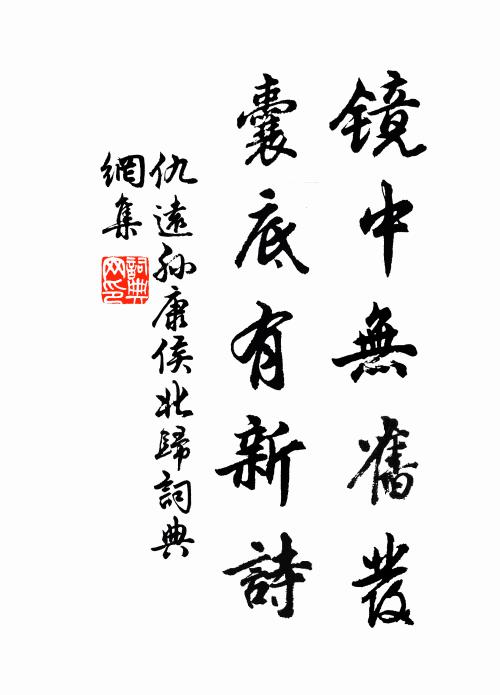 镜中無舊發
囊底有新詩
仇遠孫康侯北歸詞典
網集
詞典網印